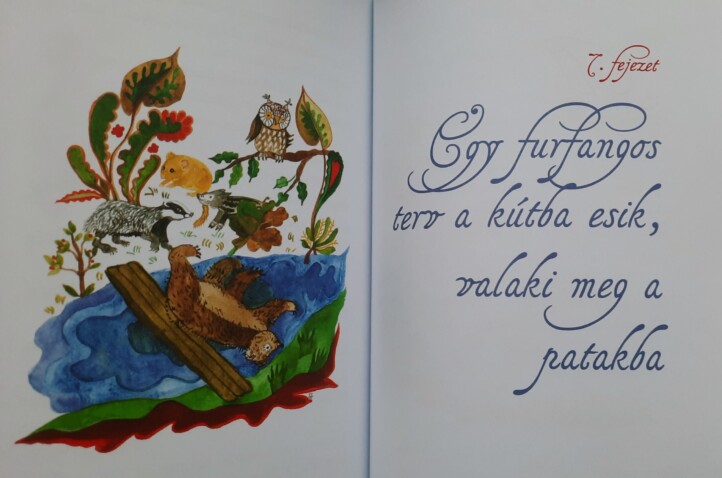 7. fejezet
Egy furfangos
terv a kútba esik,
valaki meg a
patakba